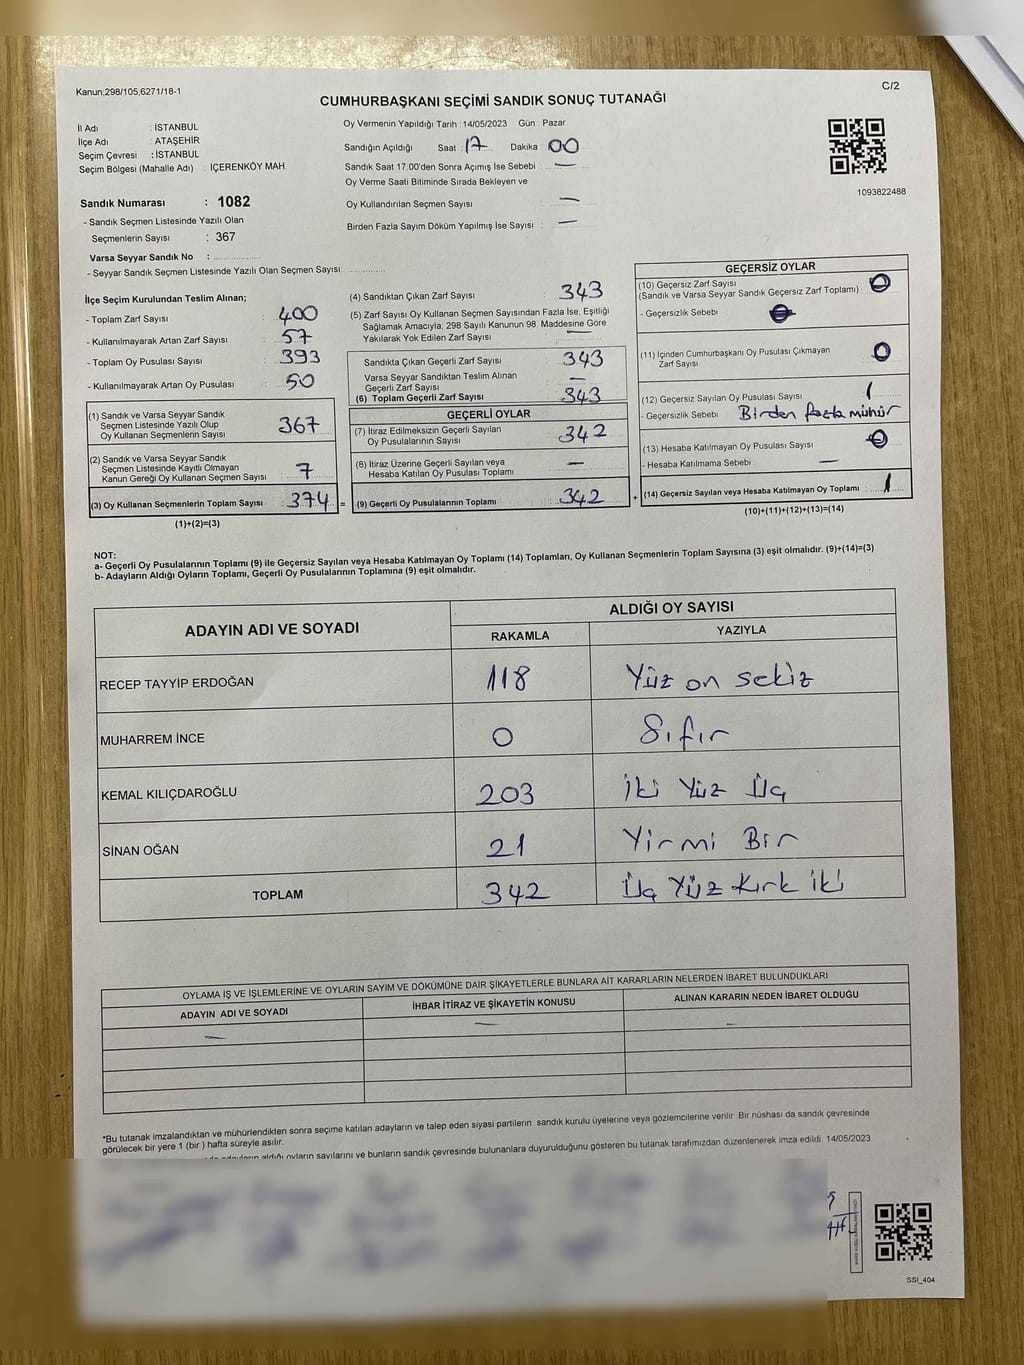 Kanun;298/105,6271/18-1
C/2
CUMHURBAŞKANI SEÇİMİ SANDIK SONUÇ TUTANAĞI
İl Adı : İSTANBUL
İlçe Adı : ATAŞEHİR
Seçim Çevresi : İSTANBUL
Seçim Bölgesi (Mahalle Adı) : İÇERENKÖY MAH.
Sandık Numarası : 1082
- Sandık Seçmen Listesinde Yazılı Olan
Seçmenlerin Sayısı : 367
Varsa Seyyar Sandık No :
- Seyyar Sandık Seçmen Listesinde Yazılı Olan Seçmen Sayısı:
Oy Vermenin Yapıldığı Tarih :14/05/2023 Gün : Pazar
Sandığın Açıldığı Saat : 17 Dakika : 00
Sandık Saat 17:00'den Sonra Açımış İse Sebebi : —
Oy Verme Saati Bitiminde Sırada Bekleyen ve
Oy Kullandırılan Seçmen Sayısı : —
Birden Fazla Sayım Döküm Yapılmış İse Sayısı : —
1093822488
İlçe Seçim Kurulundan Teslim Alınan;
- Toplam Zarf Sayısı : 400
- Kullanılmayarak Artan Zarf Sayısı : 57
- Toplam Oy Pusulası Sayısı : 393
- Kullanılmayarak Artan Oy Pusulası : 50
(1) Sandık ve Varsa Seyyar Sandık
Seçmen Listesinde Yazılı Olup
Oy Kullanan Seçmenlerin Sayısı 367
(2) Sandık ve Varsa Seyyar Sandık
Seçmen Listesinde Kayıtlı Olmayan
Kanun Gereği Oy Kullanan Seçmen Sayısı 7
(3) Oy Kullanan Seçmenlerin Toplam Sayısı 374 =
(1)+(2)=(3)
(4) Sandıktan Çıkan Zarf Sayısı : 343
(5) Zarf Sayısı Oy Kullanan Seçmen Sayısından Fazla İse, Eşitliği
Sağlamak Amacıyla; 298 Sayılı Kanunun 98. Maddesine Göre
Yakılarak Yok Edilen Zarf Sayısı : —
Sandıkta Çıkan Geçerli Zarf Sayısı 343
Varsa Seyyar Sandıktan Teslim Alınan
Geçerli Zarf Sayısı —
(6) Toplam Geçerli Zarf Sayısı 343
GEÇERLİ OYLAR
(7) İtiraz Edilmeksizin Geçerli Sayılan
Oy Pusulalarının Sayısı 342
(8) İtiraz Üzerine Geçerli Sayılan veya
Hesaba Katılan Oy Pusulası Toplamı —
(9) Geçerli Oy Pusulalarının Toplamı 342 +
GEÇERSİZ OYLAR
(10) Geçersiz Zarf Sayısı
(Sandık ve Varsa Seyyar Sandık Geçersiz Zarf Toplamı) : 0
- Geçersizlik Sebebi :
(11) İçinden Cumhurbaşkanı Oy Pusulası Çıkmayan
Zarf Sayısı 0
(12) Geçersiz Sayılan Oy Pusulası Sayısı 1
- Geçersizlik Sebebi : Birden fazla mühür
(13) Hesaba Katılmayan Oy Pusulası Sayısı 0
- Hesaba Katılmama Sebebi : —
(14) Geçersiz Sayılan veya Hesaba Katılmayan Oy Toplamı 1
(10)+(11)+(12)+(13)=(14)
NOT:
a- Geçerli Oy Pusulalarının Toplamı (9) ile Geçersiz Sayılan veya Hesaba Katılmayan Oy Toplamı (14) Toplamları, Oy Kullanan Seçmenlerin Toplam Sayısına (3) eşit olmalıdır. (9)+(14)=(3)
b- Adayların Aldığı Oyların Toplamı, Geçerli Oy Pusulalarının Toplamına (9) eşit olmalıdır.
ADAYIN ADI VE SOYADI
ALDIĞI OY SAYISI
RAKAMLA YAZIYLA
RECEP TAYYİP ERDOĞAN 118 Yüz on sekiz
MUHARREM İNCE 0 Sıfır
KEMAL KILIÇDAROĞLU 203 İki Yüz Üç
SİNAN OĞAN 21 Yirmi Bir
TOPLAM 342 Üç Yüz Kırk İki
OYLAMA İŞ VE İŞLEMLERİNE VE OYLARIN SAYIM VE DÖKÜMÜNE DAİR ŞİKAYETLERLE BUNLARA AİT KARARLARIN NELERDEN İBARET BULUNDUKLARI
ADAYIN ADI VE SOYADI İHBAR İTİRAZ VE ŞİKAYETİN KONUSU ALINAN KARARIN NEDEN İBARET OLDUĞU
— — —
*Bu tutanak imzalandıktan ve mühürlendikten sonra seçime katılan adayların ve talep eden siyasi partilerin sandık kurulu üyelerine veya gözlemcilerine verilir. Bir nüshası da sandık çevresinde
görülecek bir yere 1 (bir ) hafta süreyle asılır.
aldığı oyların sayılarını ve bunların sandık çevresinde bulunanlara duyurulduğunu gösteren bu tutanak tarafımızdan düzenlenerek imza edildi. 14/05/2023
SSI_404